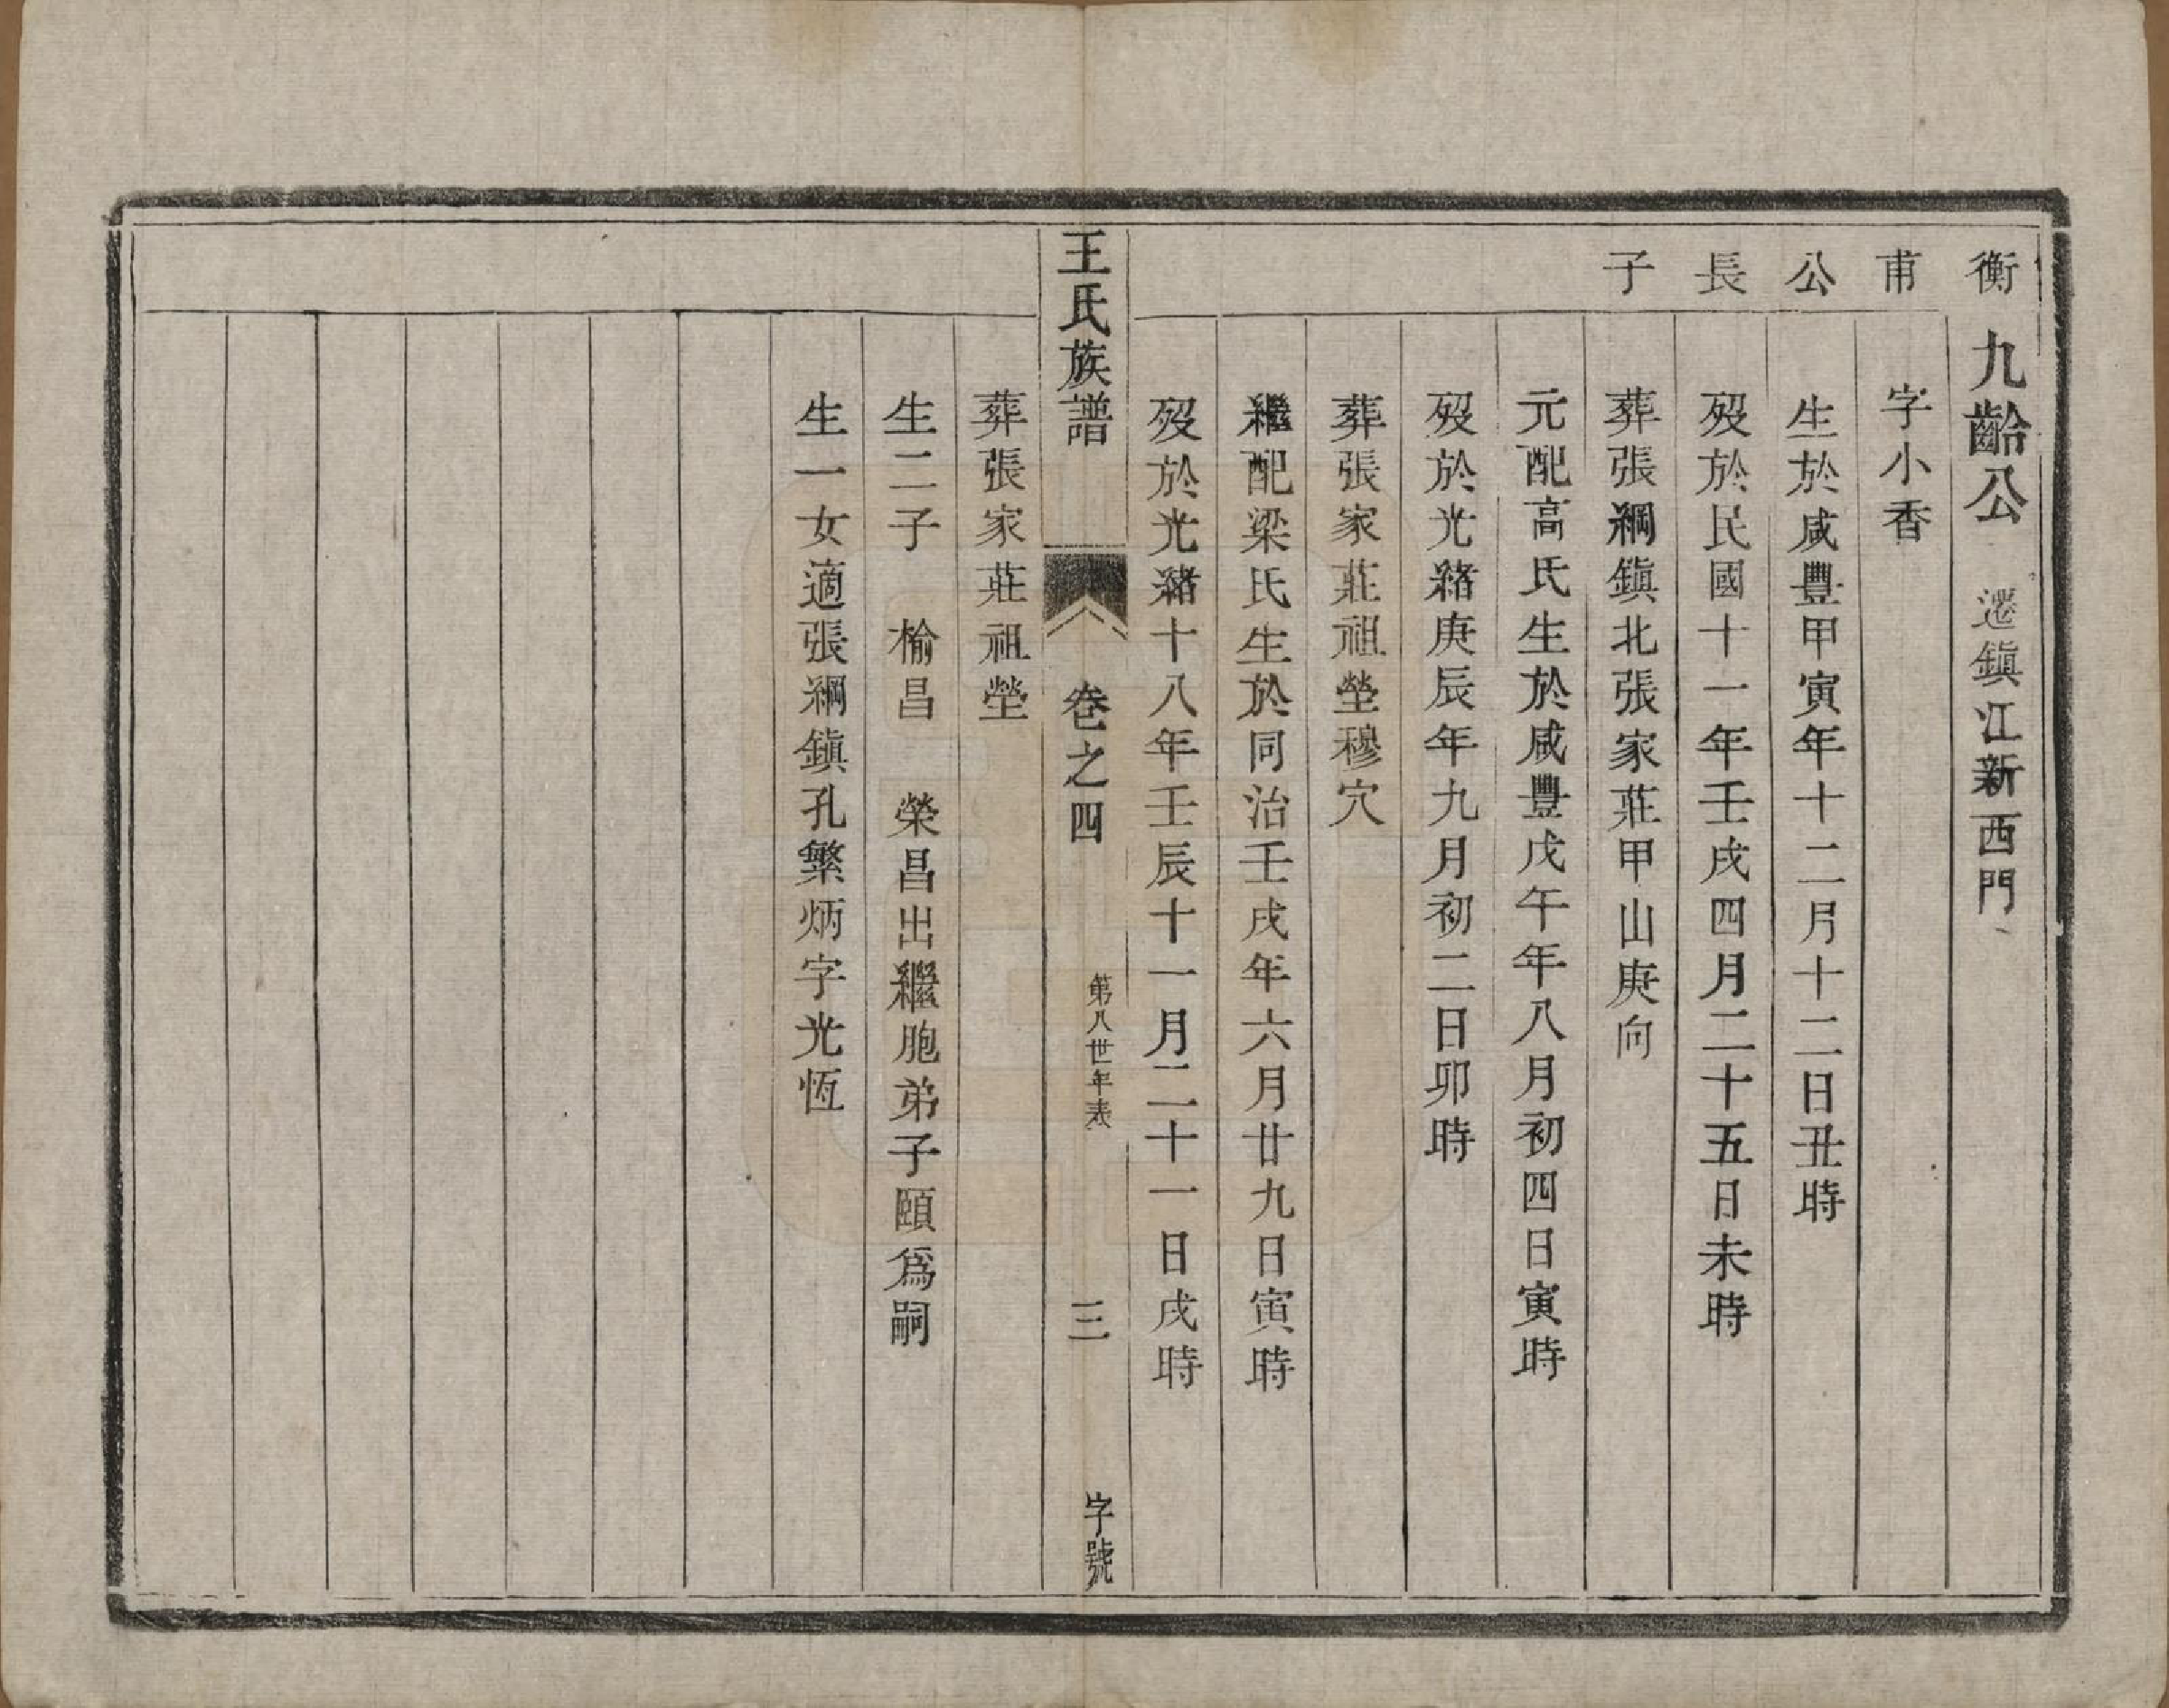 衡甫公長子
九齡公　遷鎭江新西門
字小香
生於咸豐甲寅年十二月十二日丑時
歿於民國十一年壬戌四月二十五日未時
葬張綱鎭北張家莊甲山庚向
元配高氏生於咸豐戊午年八月初四日寅時
歿於光緒庚辰年九月初二日卯時
葬張家莊祖塋穆穴
繼配梁氏生於同治壬戌年六月廿九日寅時
歿於光緒十八年壬辰十一月二十一日戌時
王氏族譜　卷之四　第八世年表　三　字號
葬張家莊祖塋
生二子　榆昌　榮昌出繼胞弟子頤爲嗣
生一女適張綱鎭孔繁炳字光恆